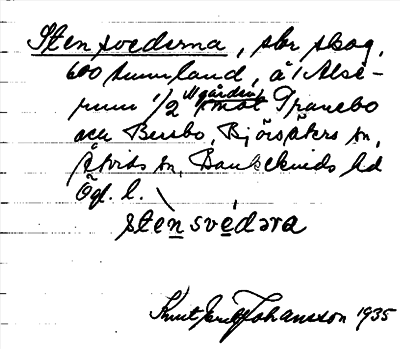 Stensvederna, stor skog,
600 tunnland, å 1 Alse-
rum 1/2 "gården" mot Tranebo
och Bersbo, Björsäters sn,
Åtvids sn, Bankekinds hd
Ögl. l.
stensvedəra
Knut Erik Johansson 1935